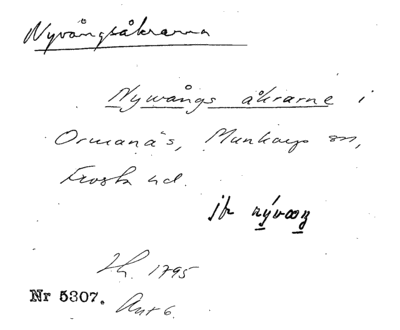 Nyvångsåkrarna
Nywångs åkrarne i
Ormanäs, Munkarp sn,
Frosta hd.
jfr nývoŋ
Lh. 1795
Nr 5307. Akt 6.